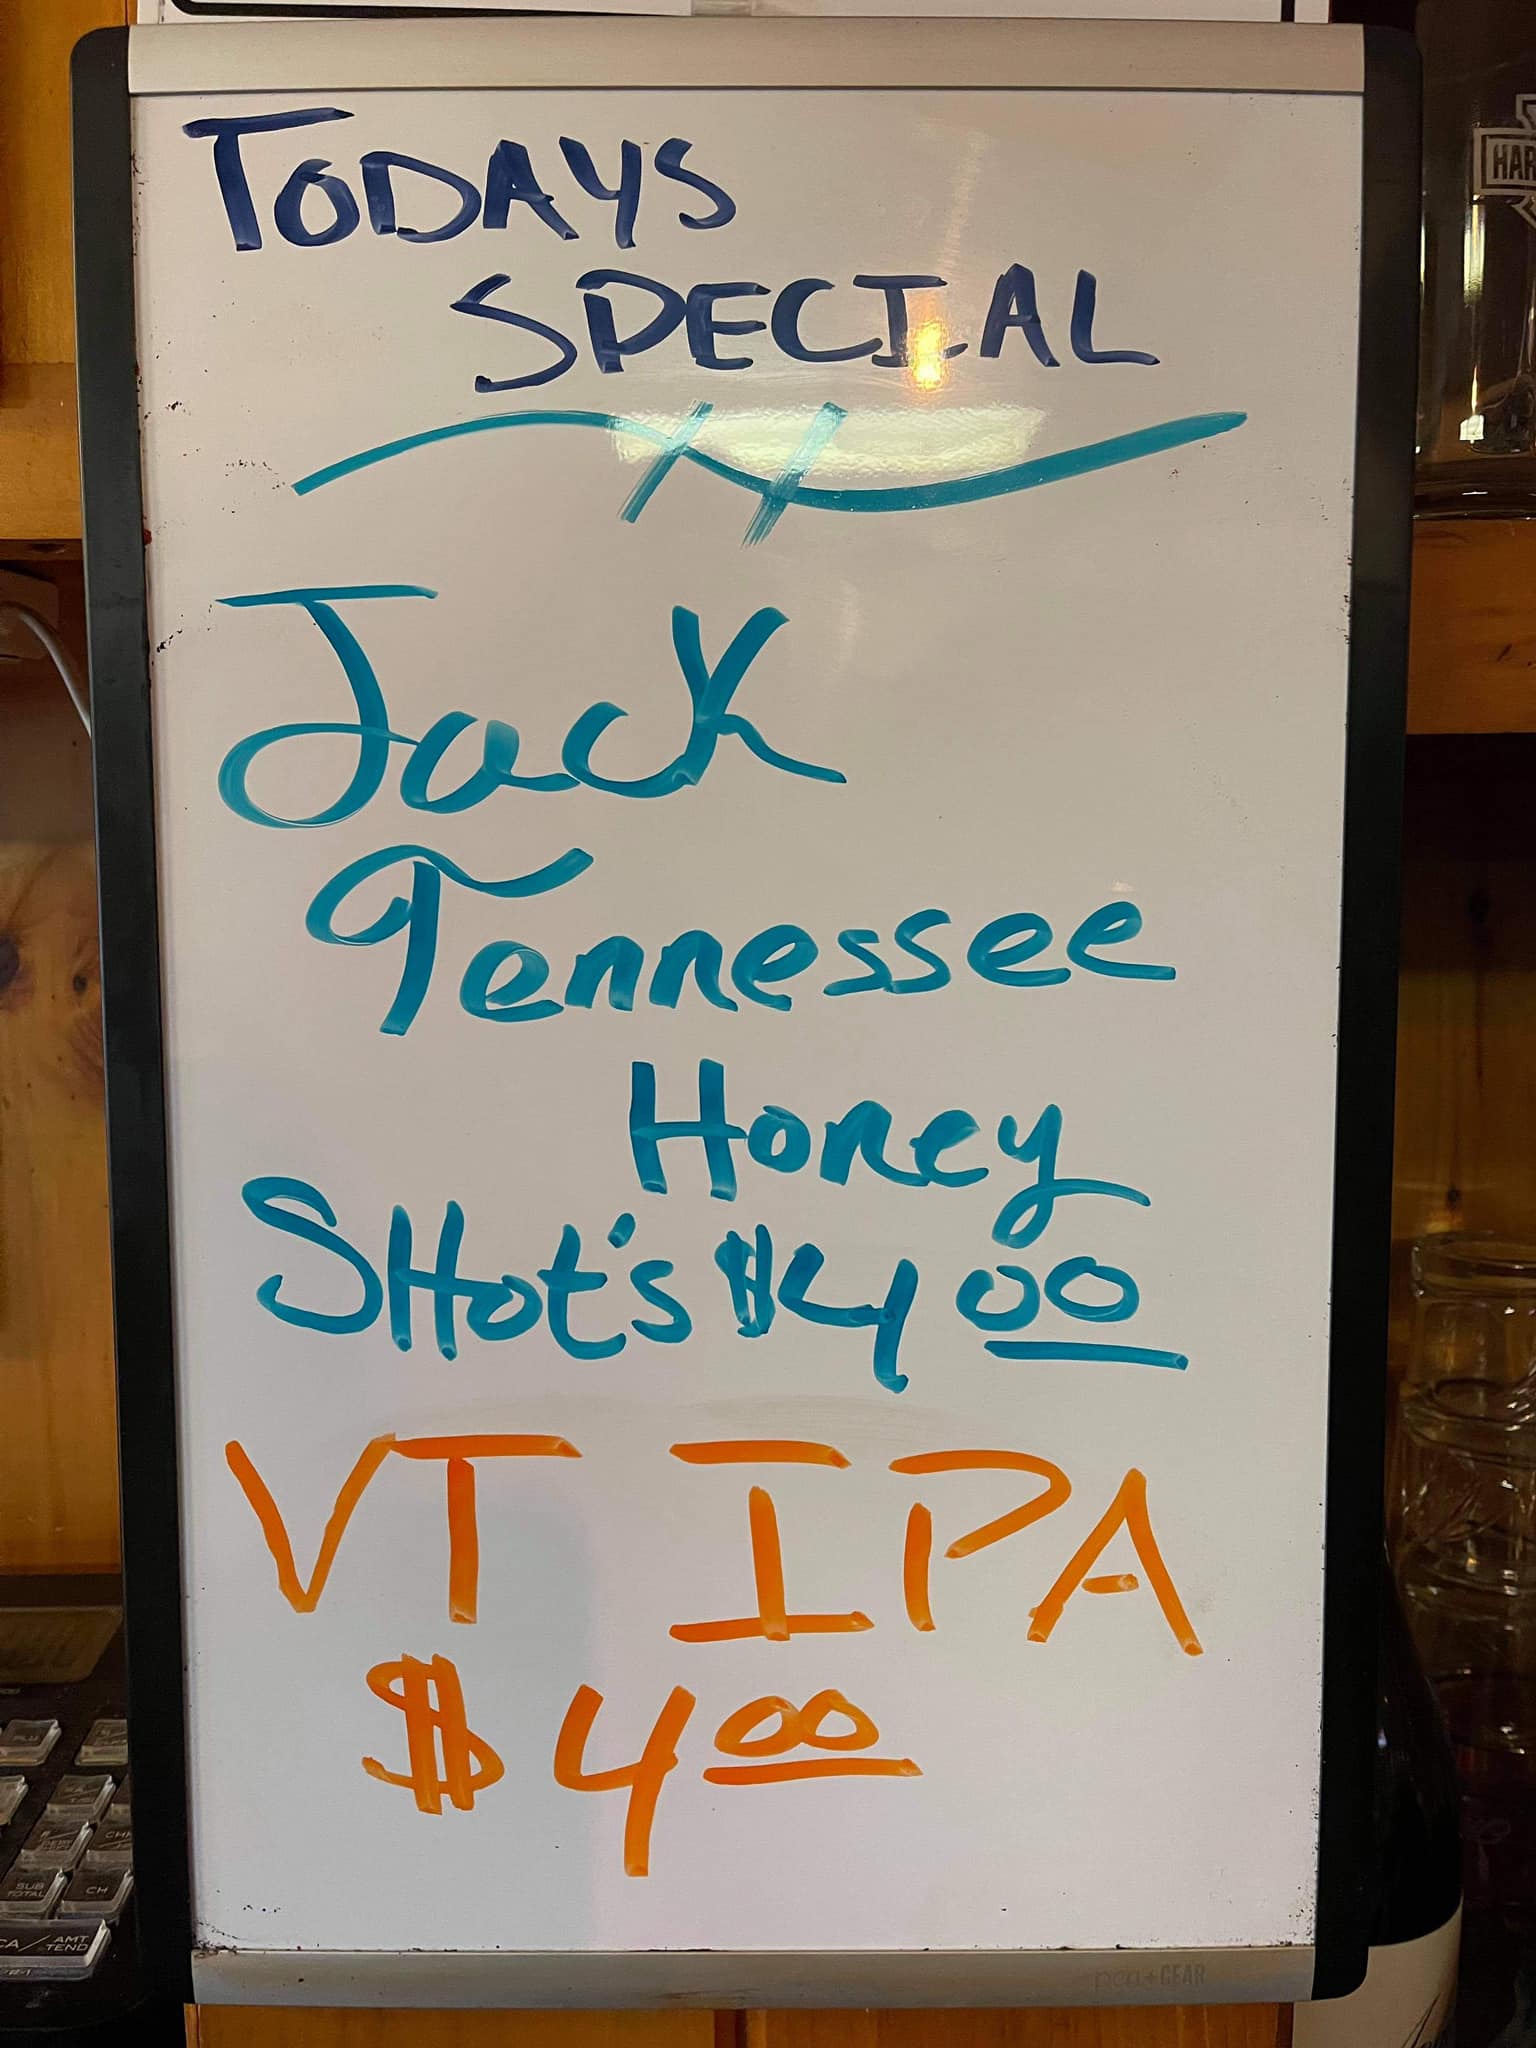 TODAYS
SPECIAL
Jack
Tennessee
Honey
SHot's $4 00
VT IPA
$4 00
pen+GEAR
HAR
SUB TOTAL
CH
CA/AMT TEND